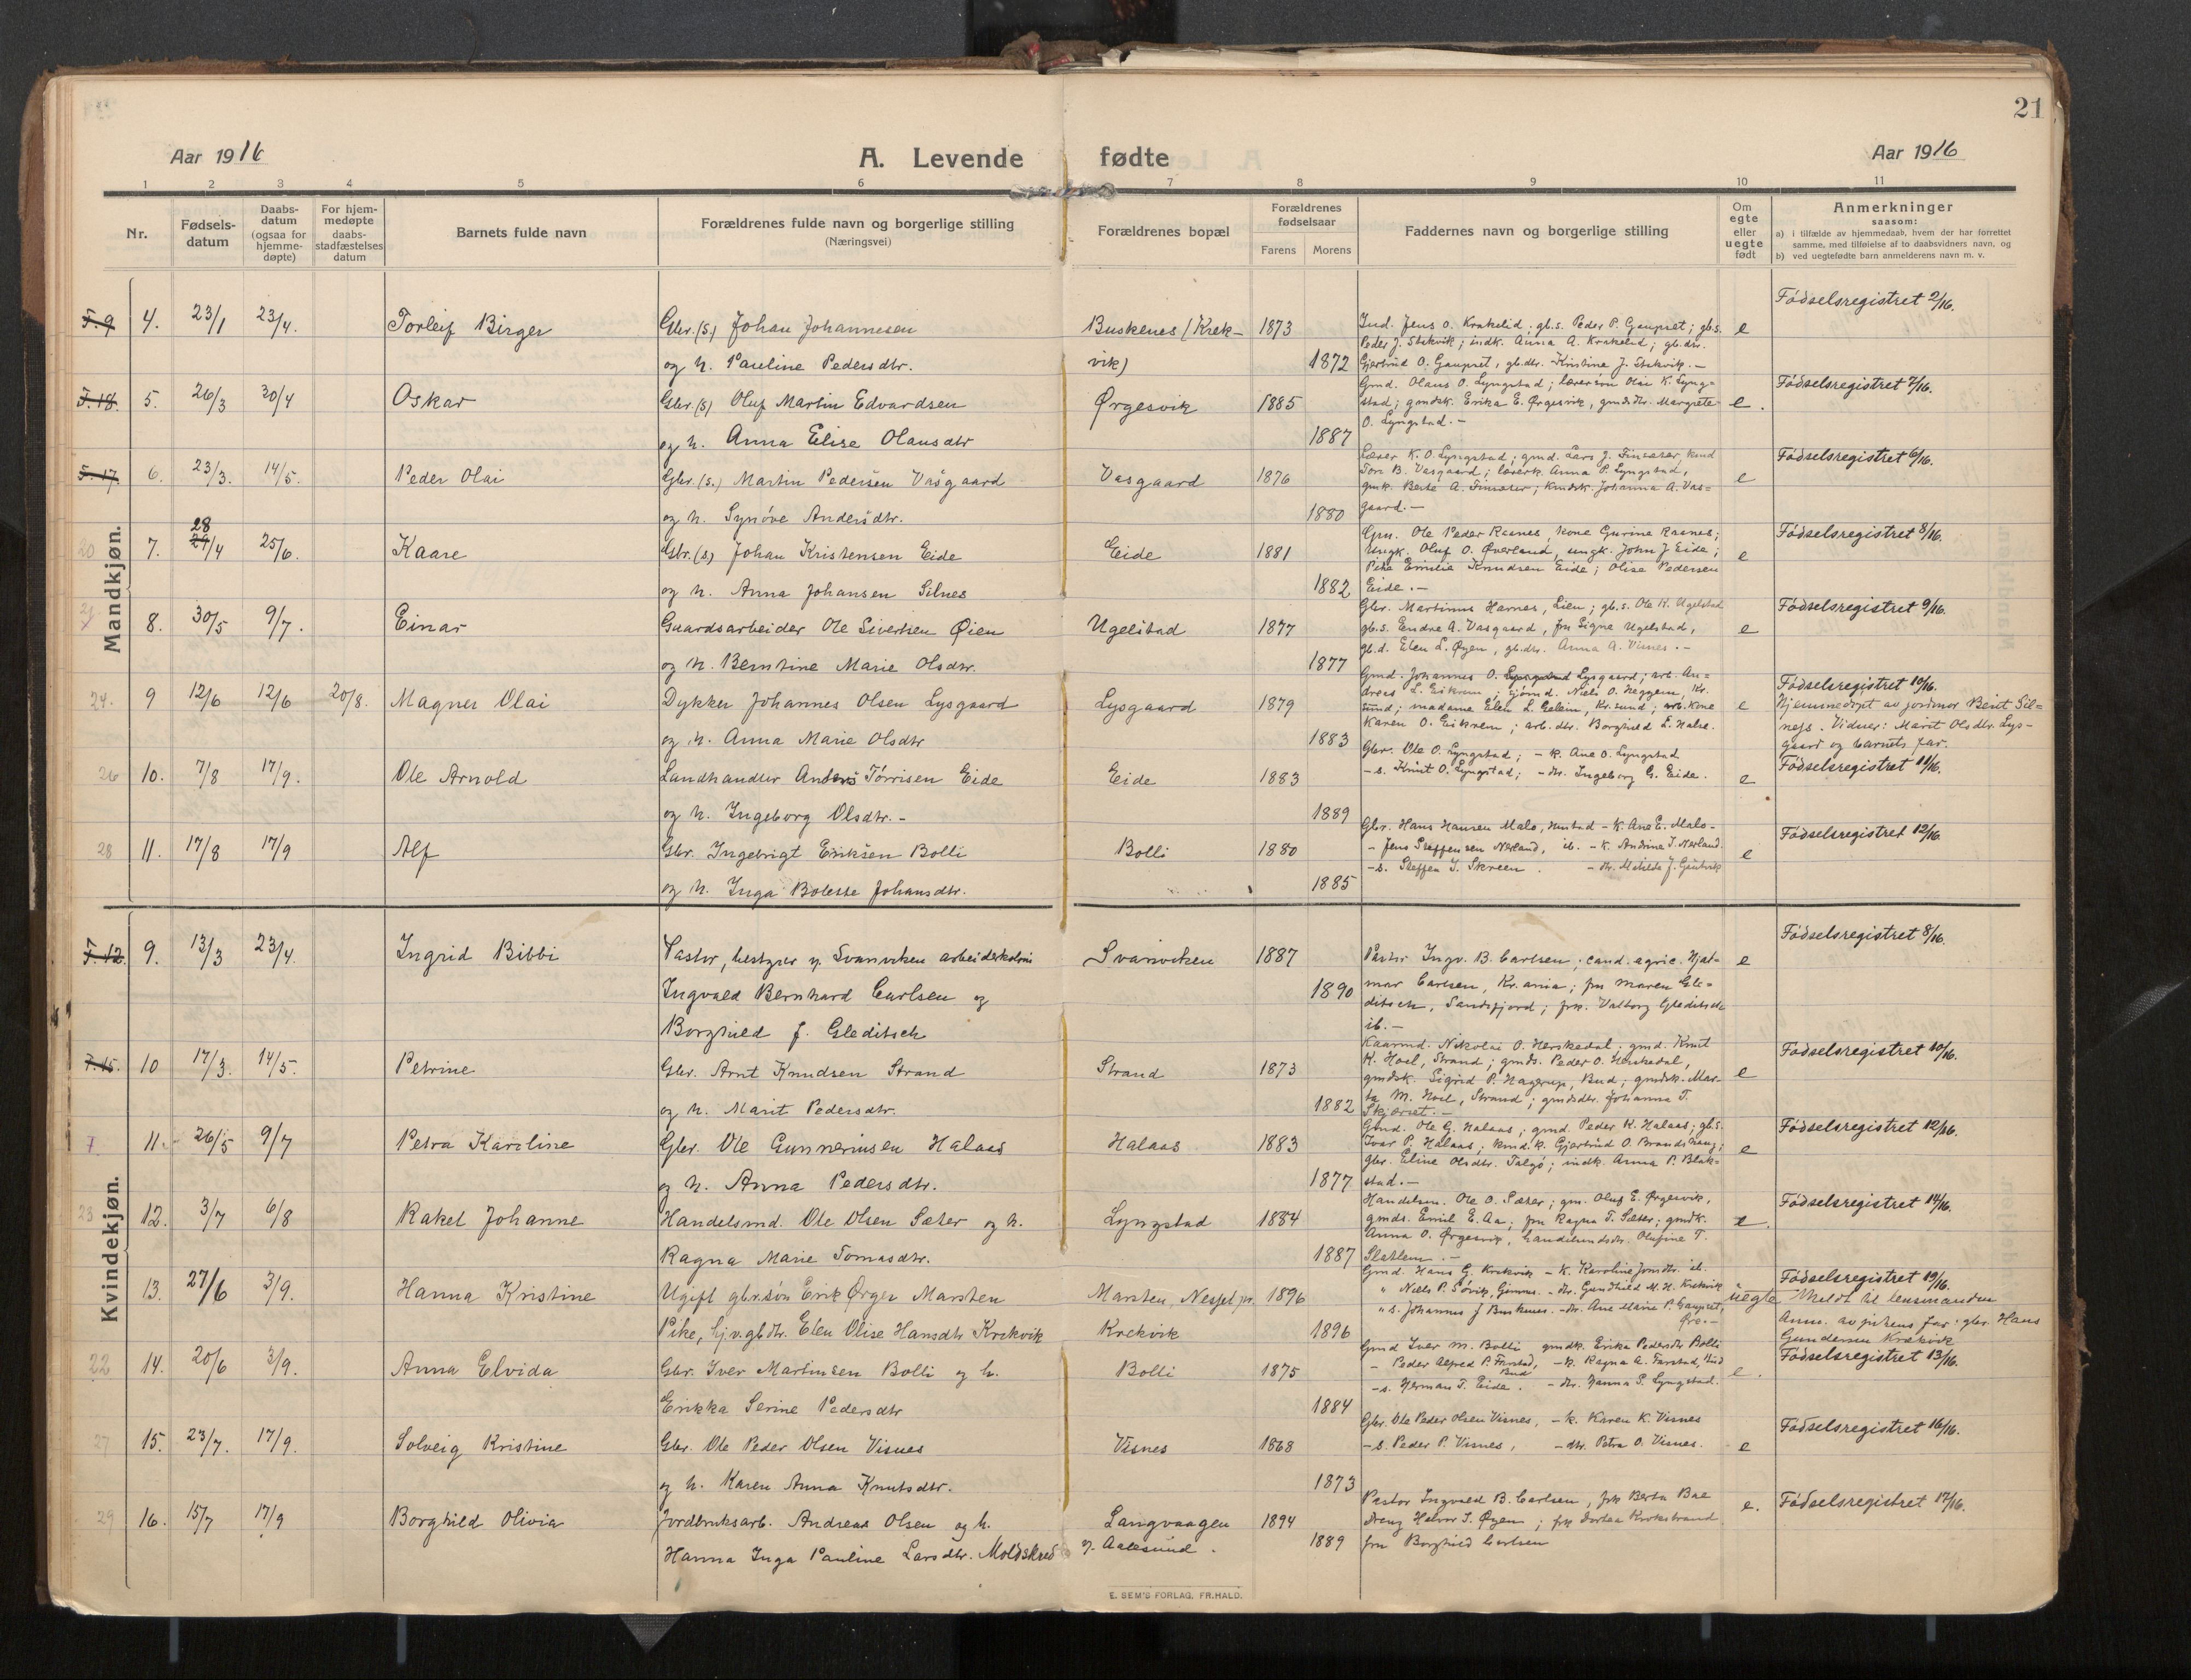 21
Aar 1916
A. Levende fødte
Aar 1916
1 2 3 4 5 6 7 8 9 10 11
Nr.
Fødsels-
datum
Daabs-
datum
(ogsaa for
hjemme-
døpte)
For hjem-
medøpte
daabs-
stadfæstelses
datum
Barnets fulde navn
Forældrenes fulde navn og borgerlige stilling
(Næringsvei)
Forældrenes bopæl
Forældrenes
fødselsaar
Farens Morens
Faddernes navn og borgerlige stilling
Om
egte
eller
uegte
født
Anmerkninger
saasom:
a) i tilfælde av hjemmedaab, hvem der har forrettet
samme, med tilføielse af to daabsvidners navn, og
b) ved uegtefødte barn anmelderens navn m. v.
Mandkjøn.
F. 9 4. 23/1 23/4. Torleif Birger
Gbr. (s) Johan Johannesen
og h. Pauline Pedersdtr.
Buskenes (Krek-
vik)
1873
1872
Ind. Jens O. Krakelid; gb.s. Peder P. Gaupset; gb.s.
Peder J. Stakvik; indk. Anna A. Krakelid; gb.dtr.
Gjertrud O. Gaupset, gb.dtr. Kristine J. Stakvik. –
e
Fødselsregistret 2/16.
F. 18. 5. 26/3 30/4 Oskar
Gbr. (s) Oluf Martin Edvardsen
og h. Anna Elise Olausdtr
Ørgesvik
1885
1887
Gmd. Olaus O. Lyngstad; lærersøn Olai K. Lyng=
stad; gmdsk. Erika E. Ørgesvik, gmdsdtr. Margrete
O. Lyngstad. –
e.
Fødselsregistret 7/16.
F. 17. 6. 23/3. 14/5. Peder Olai
Gbr. (s.) Martin Pedersen Vasgaard
og h. Synøve Andersdtr.
Vasgaard
1876
1880
Lærer K. O. Lyngstad; gmd. Lars J. Finsæter, kmd
Tore B. Vasgaard; lærerk. Anna P. Lyngstad,
gmk. Berte A. Finsæter; kmdsk. Johanna A. Vas=
gaard. –
e
Fødselsregistret 6/16.
20 7. 28 29/4 25/6. Kaare
Gbr. (s) Johan Kristensen Eide
og h. Anna Johansen Silnes
Eide
1881
1882
Gm. Ole Peder Rasnes, kone Gurine Rasnes;
Ungk. Oluf O. Øverland, ungk. John J Eide;
Pike Emilie Knudsen Eide; Olise Pedersen
Eide. –
e
Fødselsregistret 8/16.
21 8. 30/5 9/7. Einar
Gaardsarbeider Ole Sivertsen Øien
og h. Berntine Marie Olsdtr.
Ugelstad
1877
1877
Gbr. Martinus Harnes, Lien; gb.s. Ole K. Ugelstad
gb.s. Endre A. Vasgaard, frk Signe Ugelstad,
gb.d. Elen L. Øyen, gb.dtr. Anna A. Visnes. –
e
Fødselsregistret 9/16.
24. 9 12/6 12/6 20/8. Magner Olai
Dykker Johannes Olsen Lysgaard
og h. Anna Marie Olsdtr
Lysgaard
1879
1883
Gmd. Johannes O. Lysgaard; arb. An=
dreas L. Eikrem; sjømd. Niels O. Heggem, Kr.
sund; madame Elen L. Gelein, Kr.sund; arb. kone
Karen O. Eikrem; arb.dtr. Borghild L. Halse.
e
Fødselsregistret 10/16.
Hjemmedøpt av jordmor Berit Sil=
nes. Vidner: Marit Olsdtr. Lys-
gaard og barnets far.
26 10. 7/8 17/9. Ole Arnold
Landhandler Anders Tørrisen Eide
og h. Ingeborg Olsdtr. –
Eide
1883
1889
Gbr. Ole O. Lyngstad; – k. Ane O. Lyngstad
– s. Knut O. Lyngstad; – dtr. Ingeborg G. Eide.
e
Fødselsregistret 11/16.
28 11. 17/8 17/9 Alf
Gbr. Ingebrigt Eriksen Bolli
og h. Inga Bolette Johansdtr.
Bolli
1880
1885
Gbr. Hans Hansen Malo, Hustad – k. Ane E. Malo –
– Jens Steffensen Nerland, ib. – k. Andrine I. Nerland.
– s. Steffen I. Skreen. – dtr. Matilde J.
e
Fødselsregistret 12/16.
Kvindekjøn.
F. 12. 9. 13/3 23/4. Ingrid Bibbi
Pastor, bestyrer v. Svanviken arbeiderkoloni
Ingvald Bernhard Carlsen og
Borghild f. Gleditsch
Svanviken
1887
1890
Pastor Ingv. B. Carlsen; cand. agric. Hjal=
mar Carlsen, Kr.ania; fru Maren Gle=
ditsch, Sandefjord; frk. Valborg Gleditsch
ib. –
e
Fødselsregistret 8/16.
F. 15. 10 17/3. 14/5. Petrine
Gbr. Arnt Knudsen Strand
og h. Marit Pedersdtr.
Strand
1873
1882
Kaarmd. Nikolai O. Herskedal; gmd. Knut
K. Hoel, Strand; gmds. Peder O. Herskedal,
gmdsk. Sigrid P. Hagerup, Bud; gmdsk. Mar-
ta M. Hoel, Strand; gmdsdtr. Johanna T.
Skjerset. –
e
Fødselsregistret 10/16.
11. 26/5 9/7 Petra Karoline
Gbr. Ole Gunneriusen Halaas
og h. Anna Pedersdtr.
Halaas
1883
1877
Gmd. Ole G. Halaas; gmd. Peder K. Halaas; gb.s.
Iver P. Halaas; kmd.k. Gjertrud O. Brandshaug;
gbr. Eline Olsdtr. Talgø; indk. Anna P. Blak=
stad. –
e
Fødselsregistret 12/16.
23 12. 3/7 6/8 Rakel Johanne
Handelsmd. Ole Olsen Sæter og h.
Ragna Marie Tomasdtr.
Lyngstad
1884
1887
Handelsm. Ole O. Sæter; gm. Oluf E. Ørgesvik,
gmds. Emil E. Aa; fru Ragna T. Sæter; gmdk.
Anna O. Ørgesvik, handelsmdsdtr. Olufine T.
Slatlem. –
e.
Fødselsregistret 14/16.
13. 27/6 3/9. Hanna Kristine
Ugift gbr.søn Erik Ørger Marsten
Pike, hj.v. gb.dtr. Elen Olise Hansdtr Krekvik
Marsten, Nesset pr.
Krekvik
1896
1896
Gmd. Hans G. Krekvik – k. Karoline Jonsdtr. ib.
" Niels P. Sørvik, Gimnes. – dtr. Gundhild M. H. Krekvik
" s. Johannes J Buskenes. – dtr. Ane Marie P. Gaupset,
Øre. –
uegte
Fødselsregistret 19/16.
Meldt til lensmanden
Anm. av pikens far: gbr. Hans
Gundersen Krekvik
22 14. 20/6 3/9. Anna Elvida
Gbr. Iver Martinsen Bolli og h.
Erikka Serine Pedersdtr
Bolli
1875
1884
Gmd Iver M. Bolli gmdk. Erika Pedersdtr Bolli
– Peder Alfred P. Farstad, – k. Ragna A. Farstad, Bud
Bud
– s. Herman T. Eide. – dtr. Hanna P. Lyngstad.
e.
Fødselsregistret 13/16.
27 15. 23/7. 17/9. Solveig Kristine
Gbr. Ole Peder Olsen Visnes
og h. Karen Anna Knutsdtr.
Visnes
1868
1873
Gbr. Ole Peder Olsen Visnes, – k. Karen K. Visnes
– s. Peder P. Visnes, – dtr. Petra O. Visnes.
e
Fødselsregistret 16/16.
29 16. 15/7 17/9 Borghild Olivia
Jordbruksarb. Andreas Olsen og h.
Hanna Inga Pauline Larsdtr. Moldskred
Langvaagen
v. Aalesund.
1894
1889
Pastor Ingvald B. Carlsen, frk Berta Bae
Dreng Halvor S. Øyen; frk Dortea Krokstrand
fru Borghild Carlsen
e.
Fødselsregistret 17/16.
E. SEM'S FORLAG. FR.HALD.